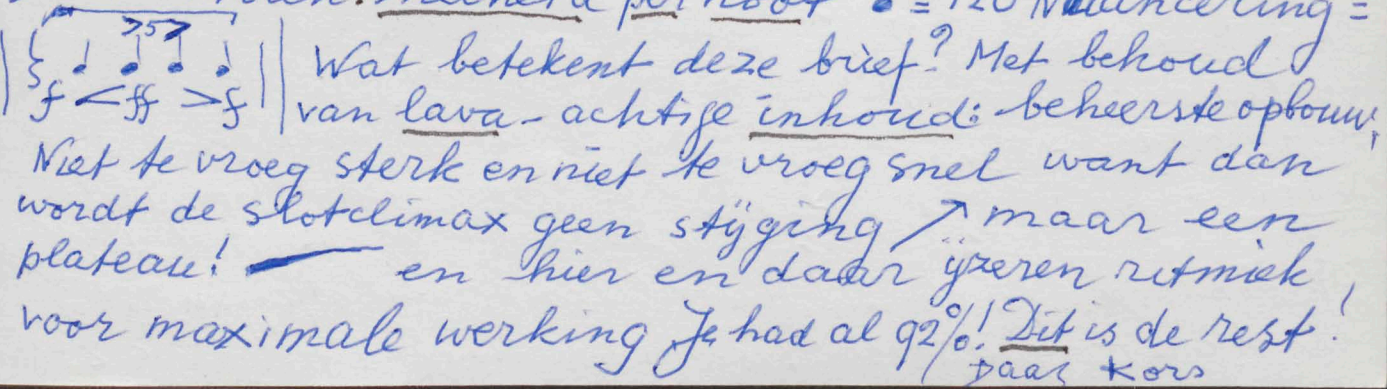 meckerd per noot ♩ = 120 Nuancering =
>5>
f < ff > f
Wat betekent deze brief? Met behoud
van lava-achtige inhoud: beheerste opbouw,
Niet te vroeg sterk en niet te vroeg snel want dan
wordt de slotclimax geen stijging ↗ maar een
plateau! — en hier en daar ijzeren ritmiek
voor maximale werking Je had al 92%! Dit is de rest!
Daan Kors